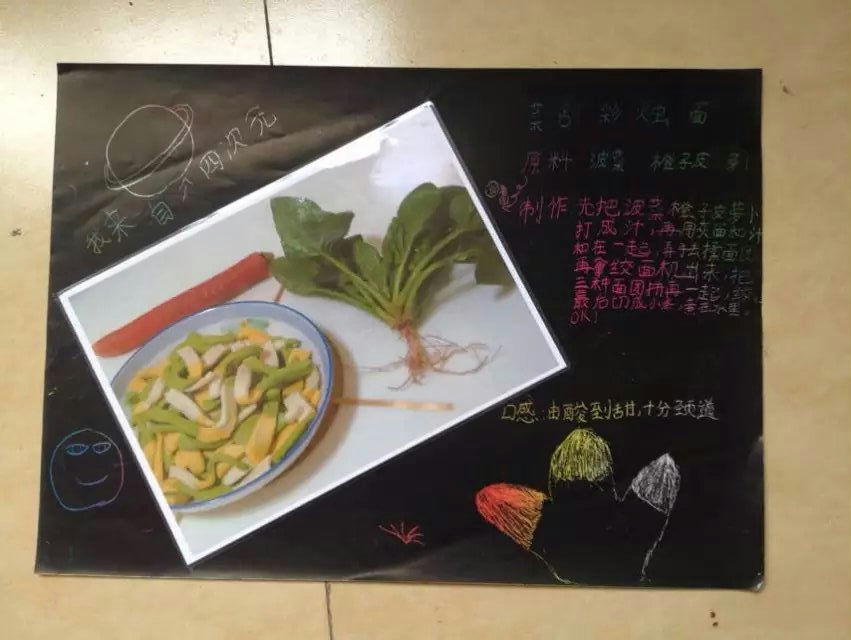 我来自个四次元
菜名 彩烛面
原料 波菜 橙子皮
制作 先把波菜橙子皮萝卜
打成汁,再用皮面和汁
和在一起,弄去揉面
再拿绞面机出来,把
三种面团拼再一起,
最后切成小条,
OK!
口感:由酸到甘甜,十分颈道